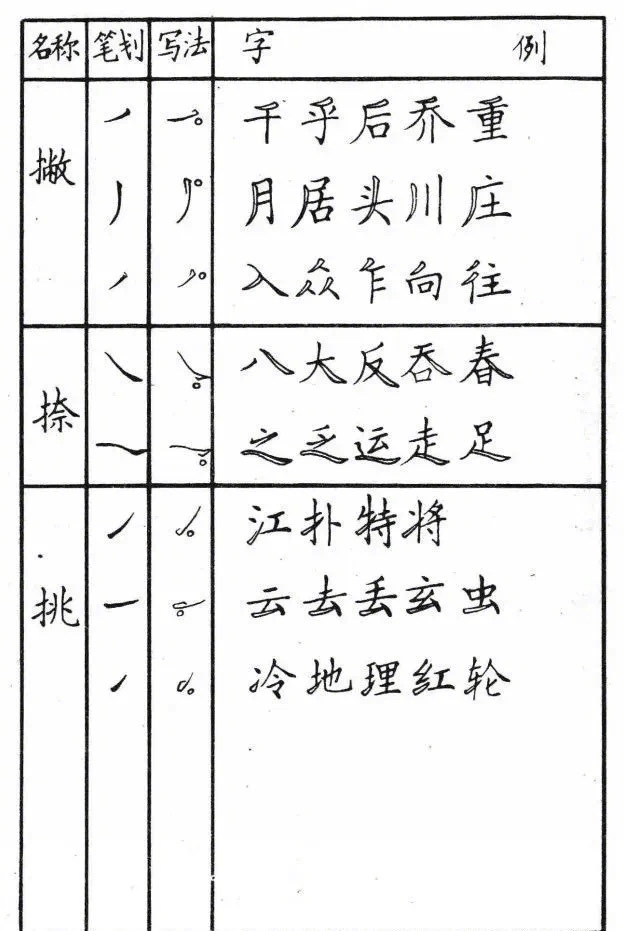 名称 笔划 写法 字 例
撇
千乎后乔重
月居头川庄
入众乍向往
捺
八大反吞春
之乏运走足
挑
江扑特将
云去丢玄虫
冷地理红轮